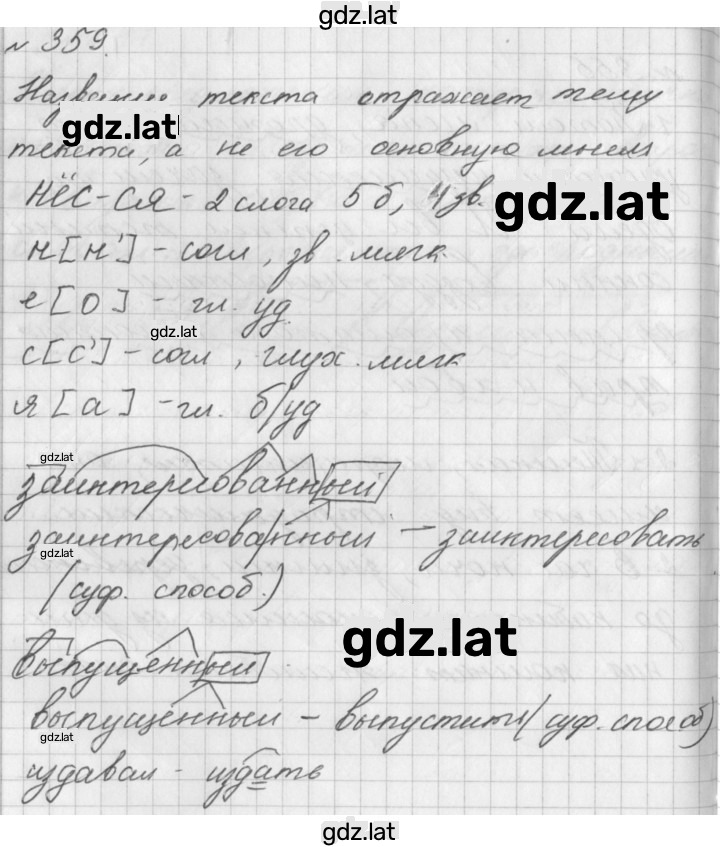 gdz.lat
№ 359.
Название текста отражает тему
gdz.lat
текста, а не его основную мысль
НЁС-СЯ - 2 слога 5 б, 4 зв.
gdz.lat
н [н'] - согл, зв. мягк.
е [о] - гл. уд.
gdz.lat
с [с'] - согл, глух. мягк
я [а] - гл. б/уд
gdz.lat
заинтересованный
заинтересованный - заинтересовать
gdz.lat
(суф. способ.)
gdz.lat
выпущенный
выпущенный - выпустить (суф. способ)
gdz.lat
издавал - издать
gdz.lat